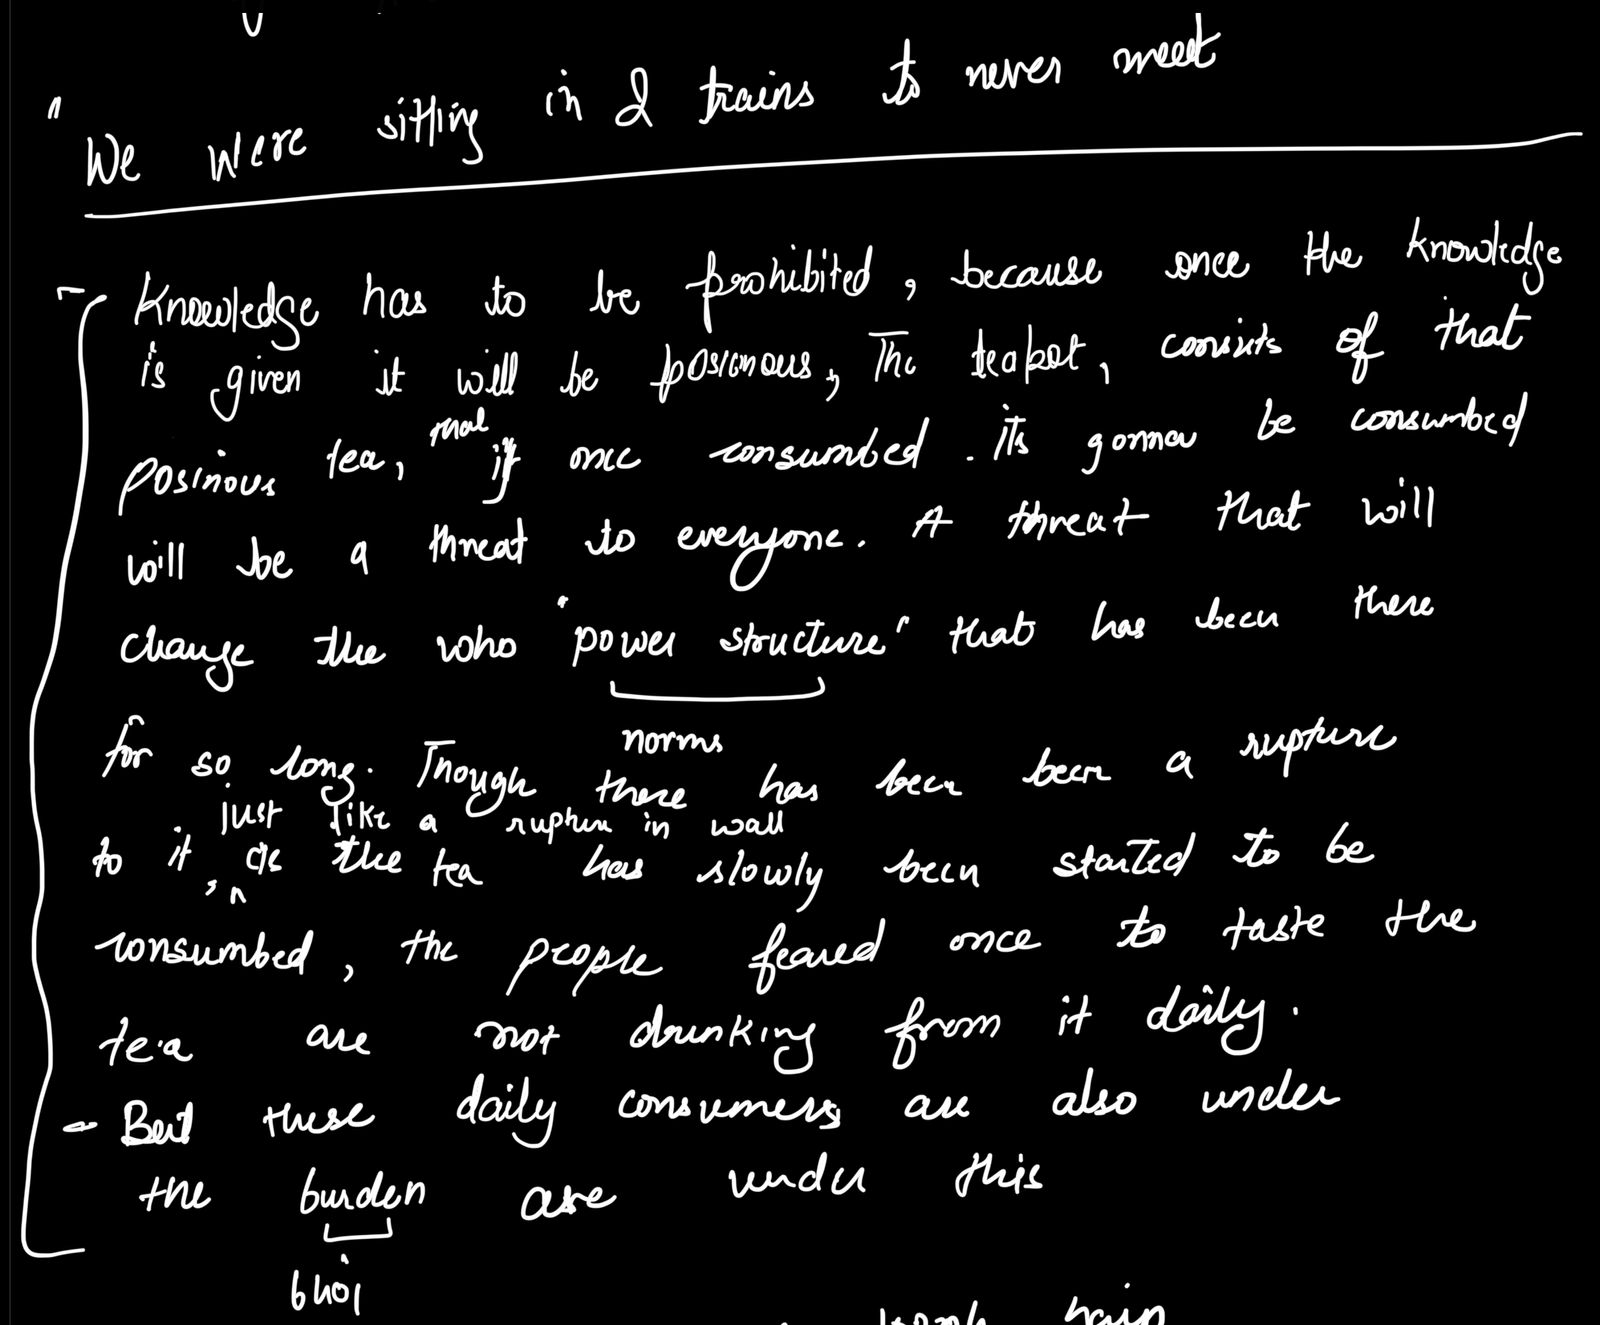 " We were sitting in 2 trains to never meet
Knowledge has to be prohibited, because once the knowledge
is given it will be posionous, The teapot, consists of that
posinous tea, that if once consumbed. its gonna be consumbed
will be a threat to everyone. A threat that will
change the who "power structure" that has been there
norms
for so long. Though there has been been a rupture
just like a rupture in wall
to it, as the tea has slowly been started to be
consumbed, the people feared once to taste the
tea are not drinking from it daily.
- But these daily consumers are also under
the burden are under this
bhoi
hain